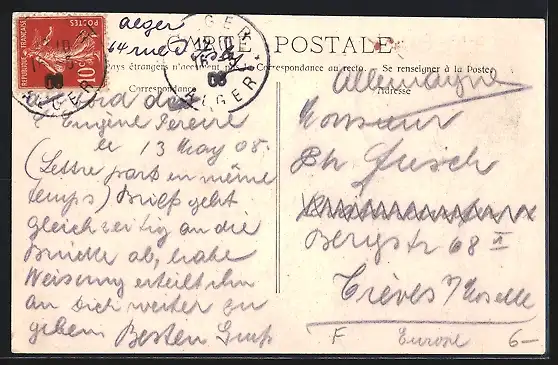 POSTES
REPUBLIQUE FRANÇAISE
10
08
ALGER
08
ALGER
CARTE POSTALE
Pays étrangers n'acceptent pas la Correspondance au recto. Se renseigner à la Poste
Correspondance
Adresse
à bord du
Eugène Pereire
le 13 May 08.
(Lettre part en même
temps) Brief geht
gleichzeitig an die
Brücke ab, habe
Weisung erteilt ihn
an Dich weiter zu
geben Besten Gruß
Allemagne
Monsieur
Bergstr 68 II
Trèves s/Moselle
F Europe 6-